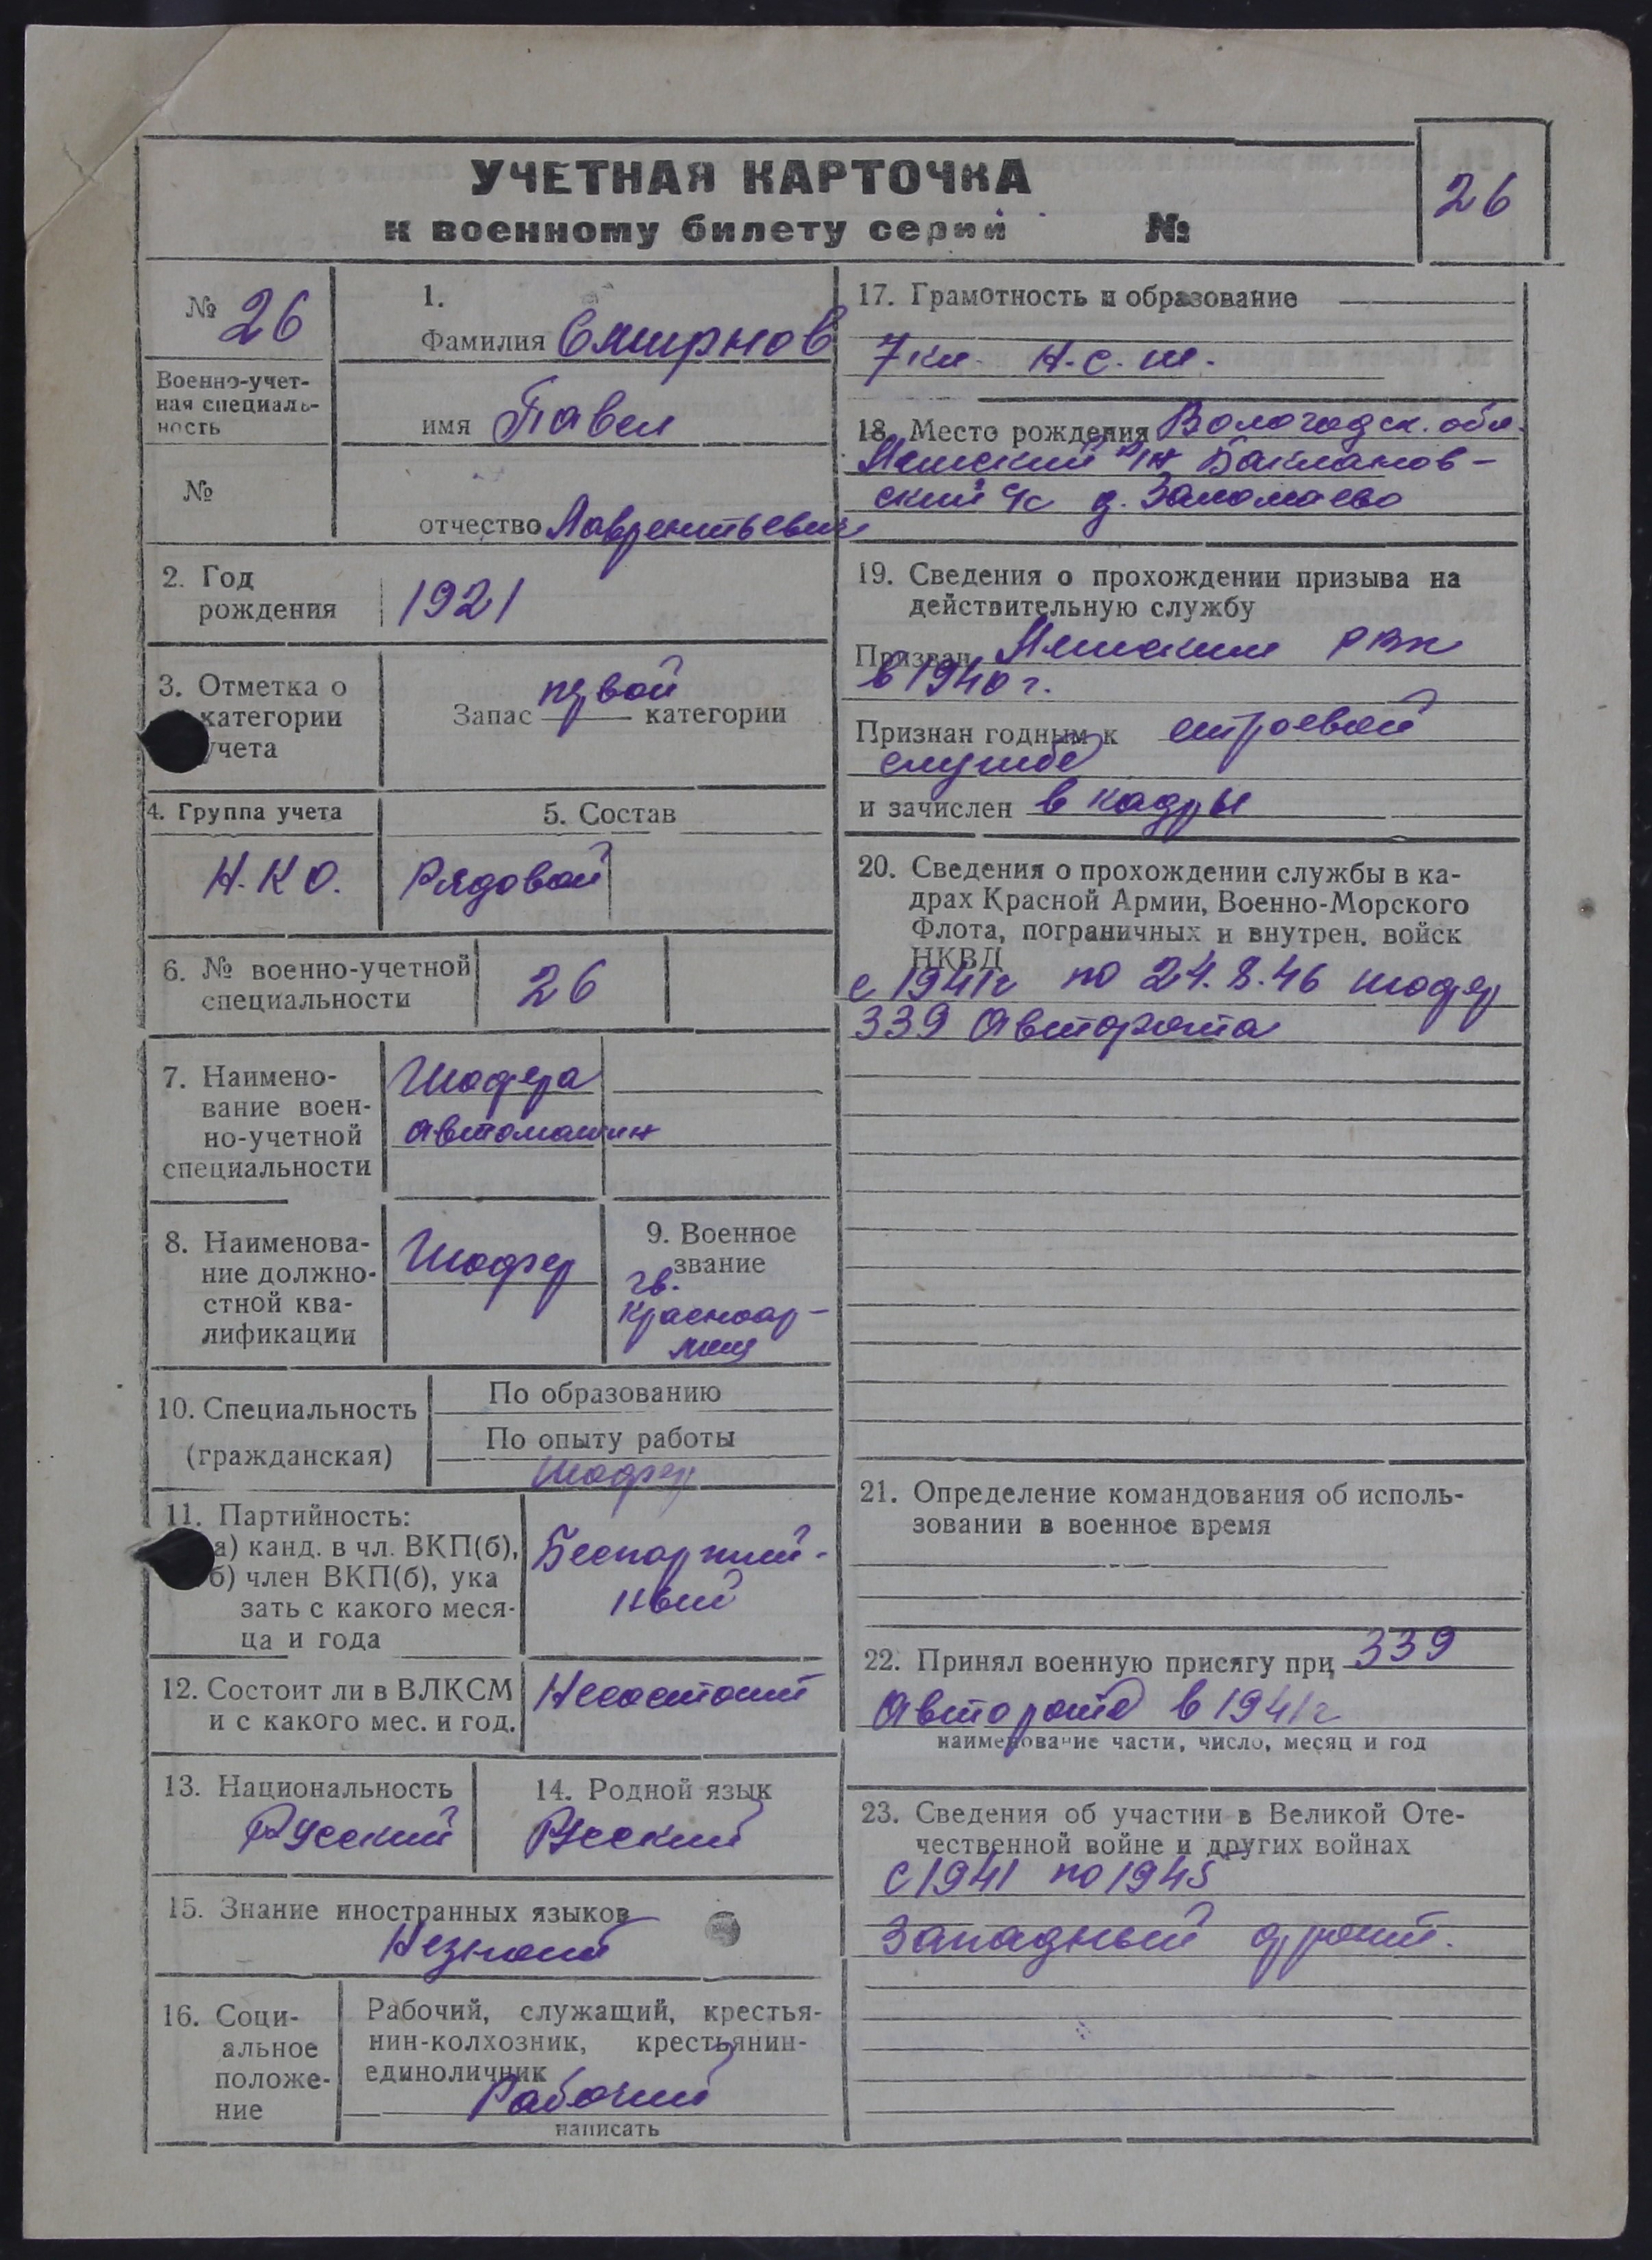 УЧЕТНАЯ КАРТОЧКА
к военному билету серии №
26
№ 26
Военно-учет-
ная специаль-
ность
№
1.
Фамилия Смирнов
имя Павел
отчество Лаврентьевич
2. Год
рождения
1921
3. Отметка о
категории
учета
первой
Запас категории
4. Группа учета
Н.К О.
5. Состав
Рядовой
6. № военно-учетной
специальности
26
7. Наимено-
вание воен-
но-учетной
специальности
Шофера
автомашин
8. Наименова-
ние должно-
стной ква-
лификации
Шофер
9. Военное
звание
гв.
красноар-
меец
10. Специальность
(гражданская)
По образованию
По опыту работы
Шофер
11. Партийность:
а) канд. в чл. ВКП(б),
б) член ВКП(б), ука
зать с какого меся-
ца и года
Беспартий-
ный
12. Состоит ли в ВЛКСМ
и с какого мес. и год.
Несостоит
13. Национальность
Русский
14. Родной язык
Русский
15. Знание иностранных языков
Незнает
16. Соци-
альное
положе-
ние
Рабочий, служащий, крестья-
нин-колхозник, крестьянин-
единоличник
Рабочий
написать
17. Грамотность и образование
7 кл. Н.С.Ш.
18. Место рождения Вологодск. обл.
р/н
ский с/с д.
19. Сведения о прохождении призыва на
действительную службу
Призван РВК
в 1940 г.
Признан годным к строевой
службе
и зачислен в кадры
20. Сведения о прохождении службы в ка-
драх Красной Армии, Военно-Морского
Флота, пограничных и внутрен. войск
НКВД
с 1941г по 24.8.46 шофер
339 Авторота
21. Определение командования об исполь-
зовании в военное время
22. Принял военную присягу при 339
Автороте в 1941г
наименование части, число, месяц и год
23. Сведения об участии в Великой Оте-
чественной войне и других войнах
с 1941 по 1945
Западный фронт.